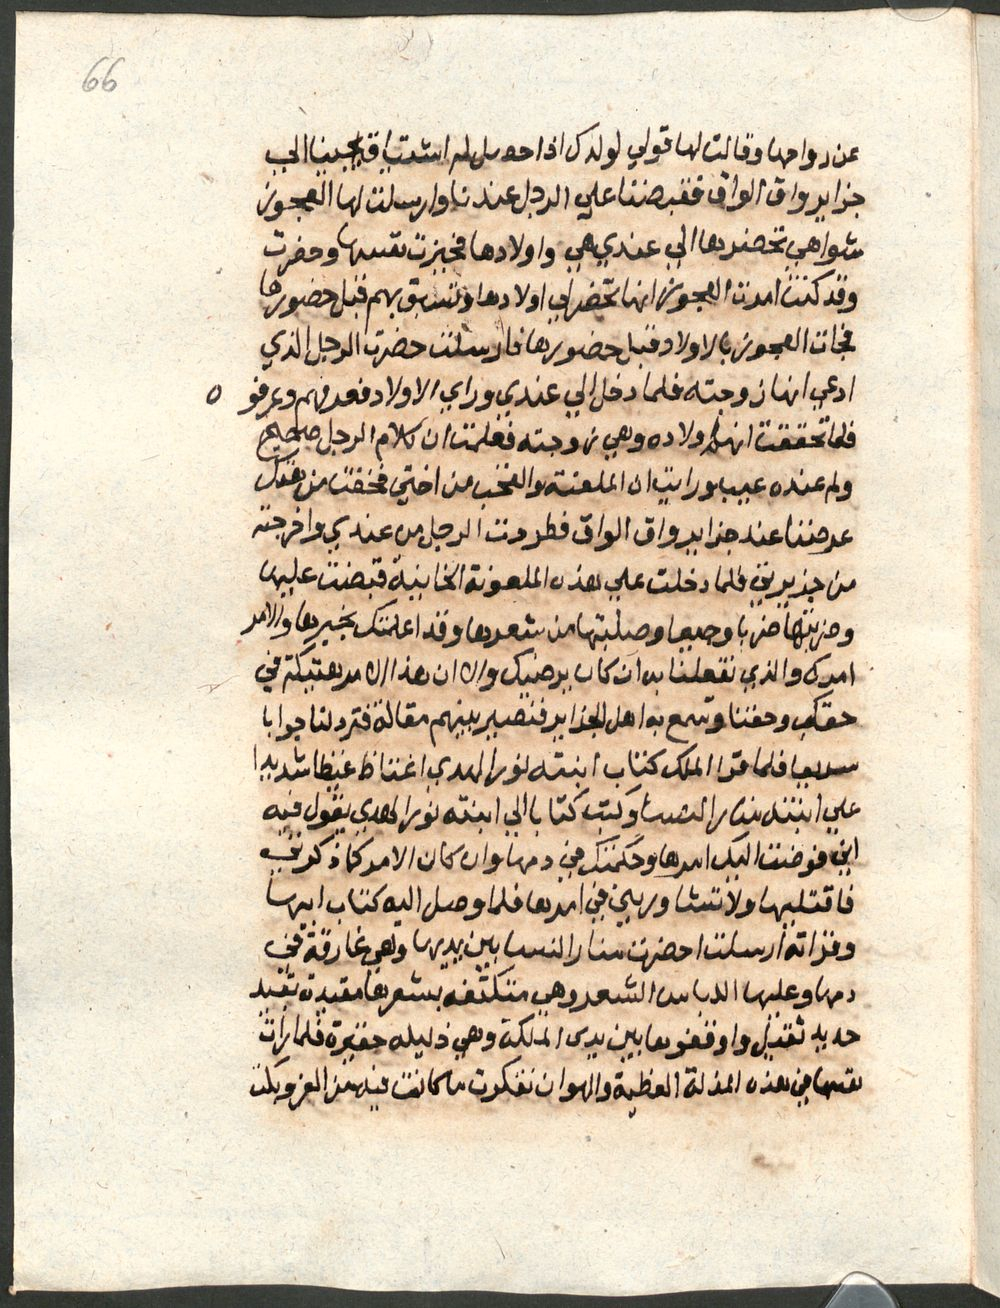 66
عن رواحها وقالت لها قولي لولدك اذا حصل له اشتياق يجينا الي
جزاير واق الواق فقبضنا علي الرجل عندنا وارسلت لها العجوز
شواهي تحضرها الي عندي هي واولادها فجهزت نفسها وحضرت
وقد كنت امرت العجوز انها تحضر لي اولادها وتسبق بهم قبل حضورها
فجات العجوز بالاولاد قبل حضورها فارسلت حضرت الرجل الذي
ادعي انها زوجته فلما دخل الي عندي وراي الاولاد فعرفهم وعرفو ٥
فلما تحققت انهم اولاده وهي زوجته فعلمت ان كلام الرجل صحيح
ولم عنده عيب ورايت ان الملعنة والقحب من اختي فخفت من هتك
عرضنا عند جزاير واق الواق فطردت الرجل من عندي واخرجته
من جزيرتي فلما دخلت علي هذه الملعونة الخاينة قبضت عليها
وضربتها ضربا وجيعا وصلبتها من شعرها وقد اعلمتك بخبرها والامر
امرك والذي تفعلنا به ان كان يرضيك والا ان هذا الامر هتيكة في
حقك وحقنا وتسمع بو اهل الجزاير فنصير بينهم مقالة فترد لنا جوابا
سريعا فلما قرا الملك كتاب ابنته نور الهدي اغتاظ غيظا شديدا
علي ابنته منار النسا وكتب كتابا الي ابنته نور الهدي يقول فيه
اني فوضت اليك امرها وحكمتك في دمها وان كان الامر كما ذكرتي
فاقتليها ولا تشاوريني في امرها فلما وصل اليه كتاب ابيها
وقراته ارسلت احضرت منار النسا بين يديها وهي غارقة في
دمها وعليها اللباس الشعر وهي متكتفه بشعرها مقيدة بقيد
حديد ثقيل واوقفوها بين يدي الملكة وهي ذليله حقيرة فلما رات
نفسها في هذه المذلة العظيمة والهوان تفكرت ما كانت فيه من العز وبكت